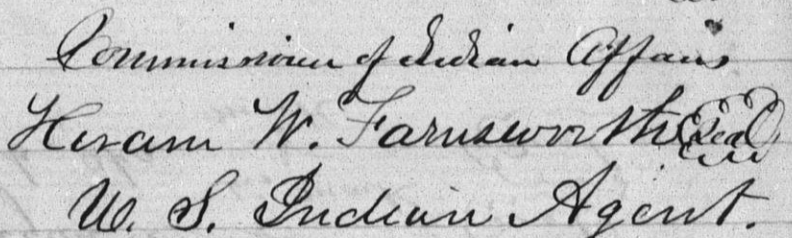 Commissioner of Indian Affairs
Hiram W. Farnsworth Seal
U. S. Indian Agent.